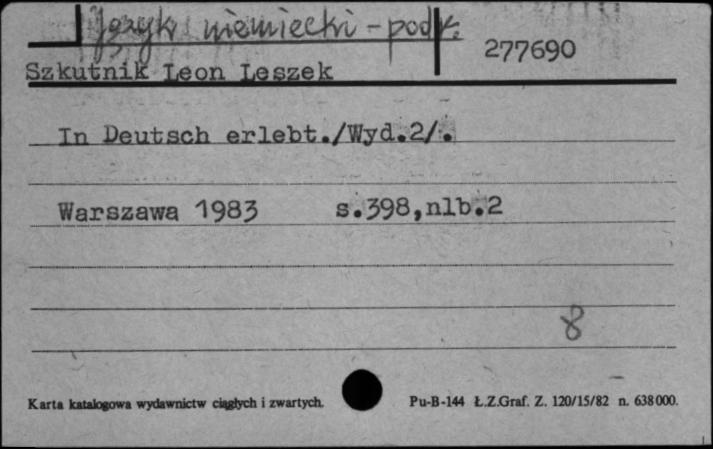 Język niemiecki - podr.
277690
Szkutnik Leon Leszek
In Deutsch erlebt./Wyd.2/.
Warszawa 1983 s.398,nlb.2
8
Karta katalogowa wydawnictw ciągłych i zwartych. Pu-B-144 Ł.Z.Graf. Z. 120/15/82 n. 638 000.